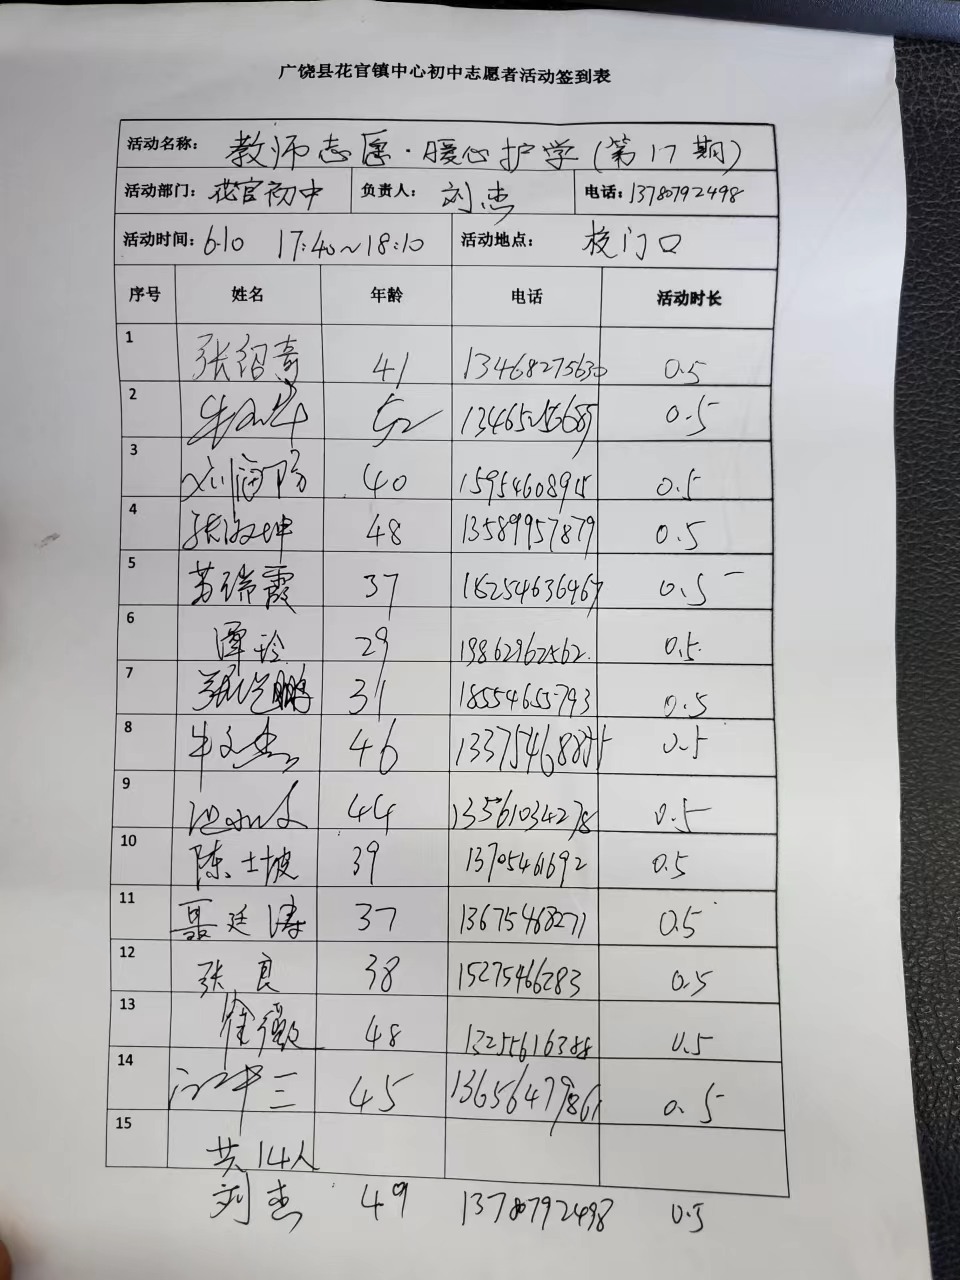 广饶县花官镇中心初中志愿者活动签到表
活动名称： 教师志愿·暖心护学（第17期）
活动部门： 花官初中 负责人： 刘杰 电话：13780792498
活动时间：6.10 17:40~18:10 活动地点： 校门口
序号 姓名 年龄 电话 活动时长
1 张绍奇 41 13468275630 0.5
2 52 0.5
3 刘润芬 40 0.5
4 张海坤 48 13589957879 0.5
5 苏瑞霞 37 18254636467 0.5
6 谭玲 29 19862962562 0.5
7 31 18554655793 0.5
8 牛文杰 46 0.5
9 44 13561034278 0.5
10 陈士坡 39 13705461692 0.5
11 聂廷涛 37 13675468271 0.5
12 张良 38 15275466283 0.5
13 徐薇 48 13255616388 0.5
14 45 13656479861 0.5
15
共14人
刘杰 49 13780792498 0.5